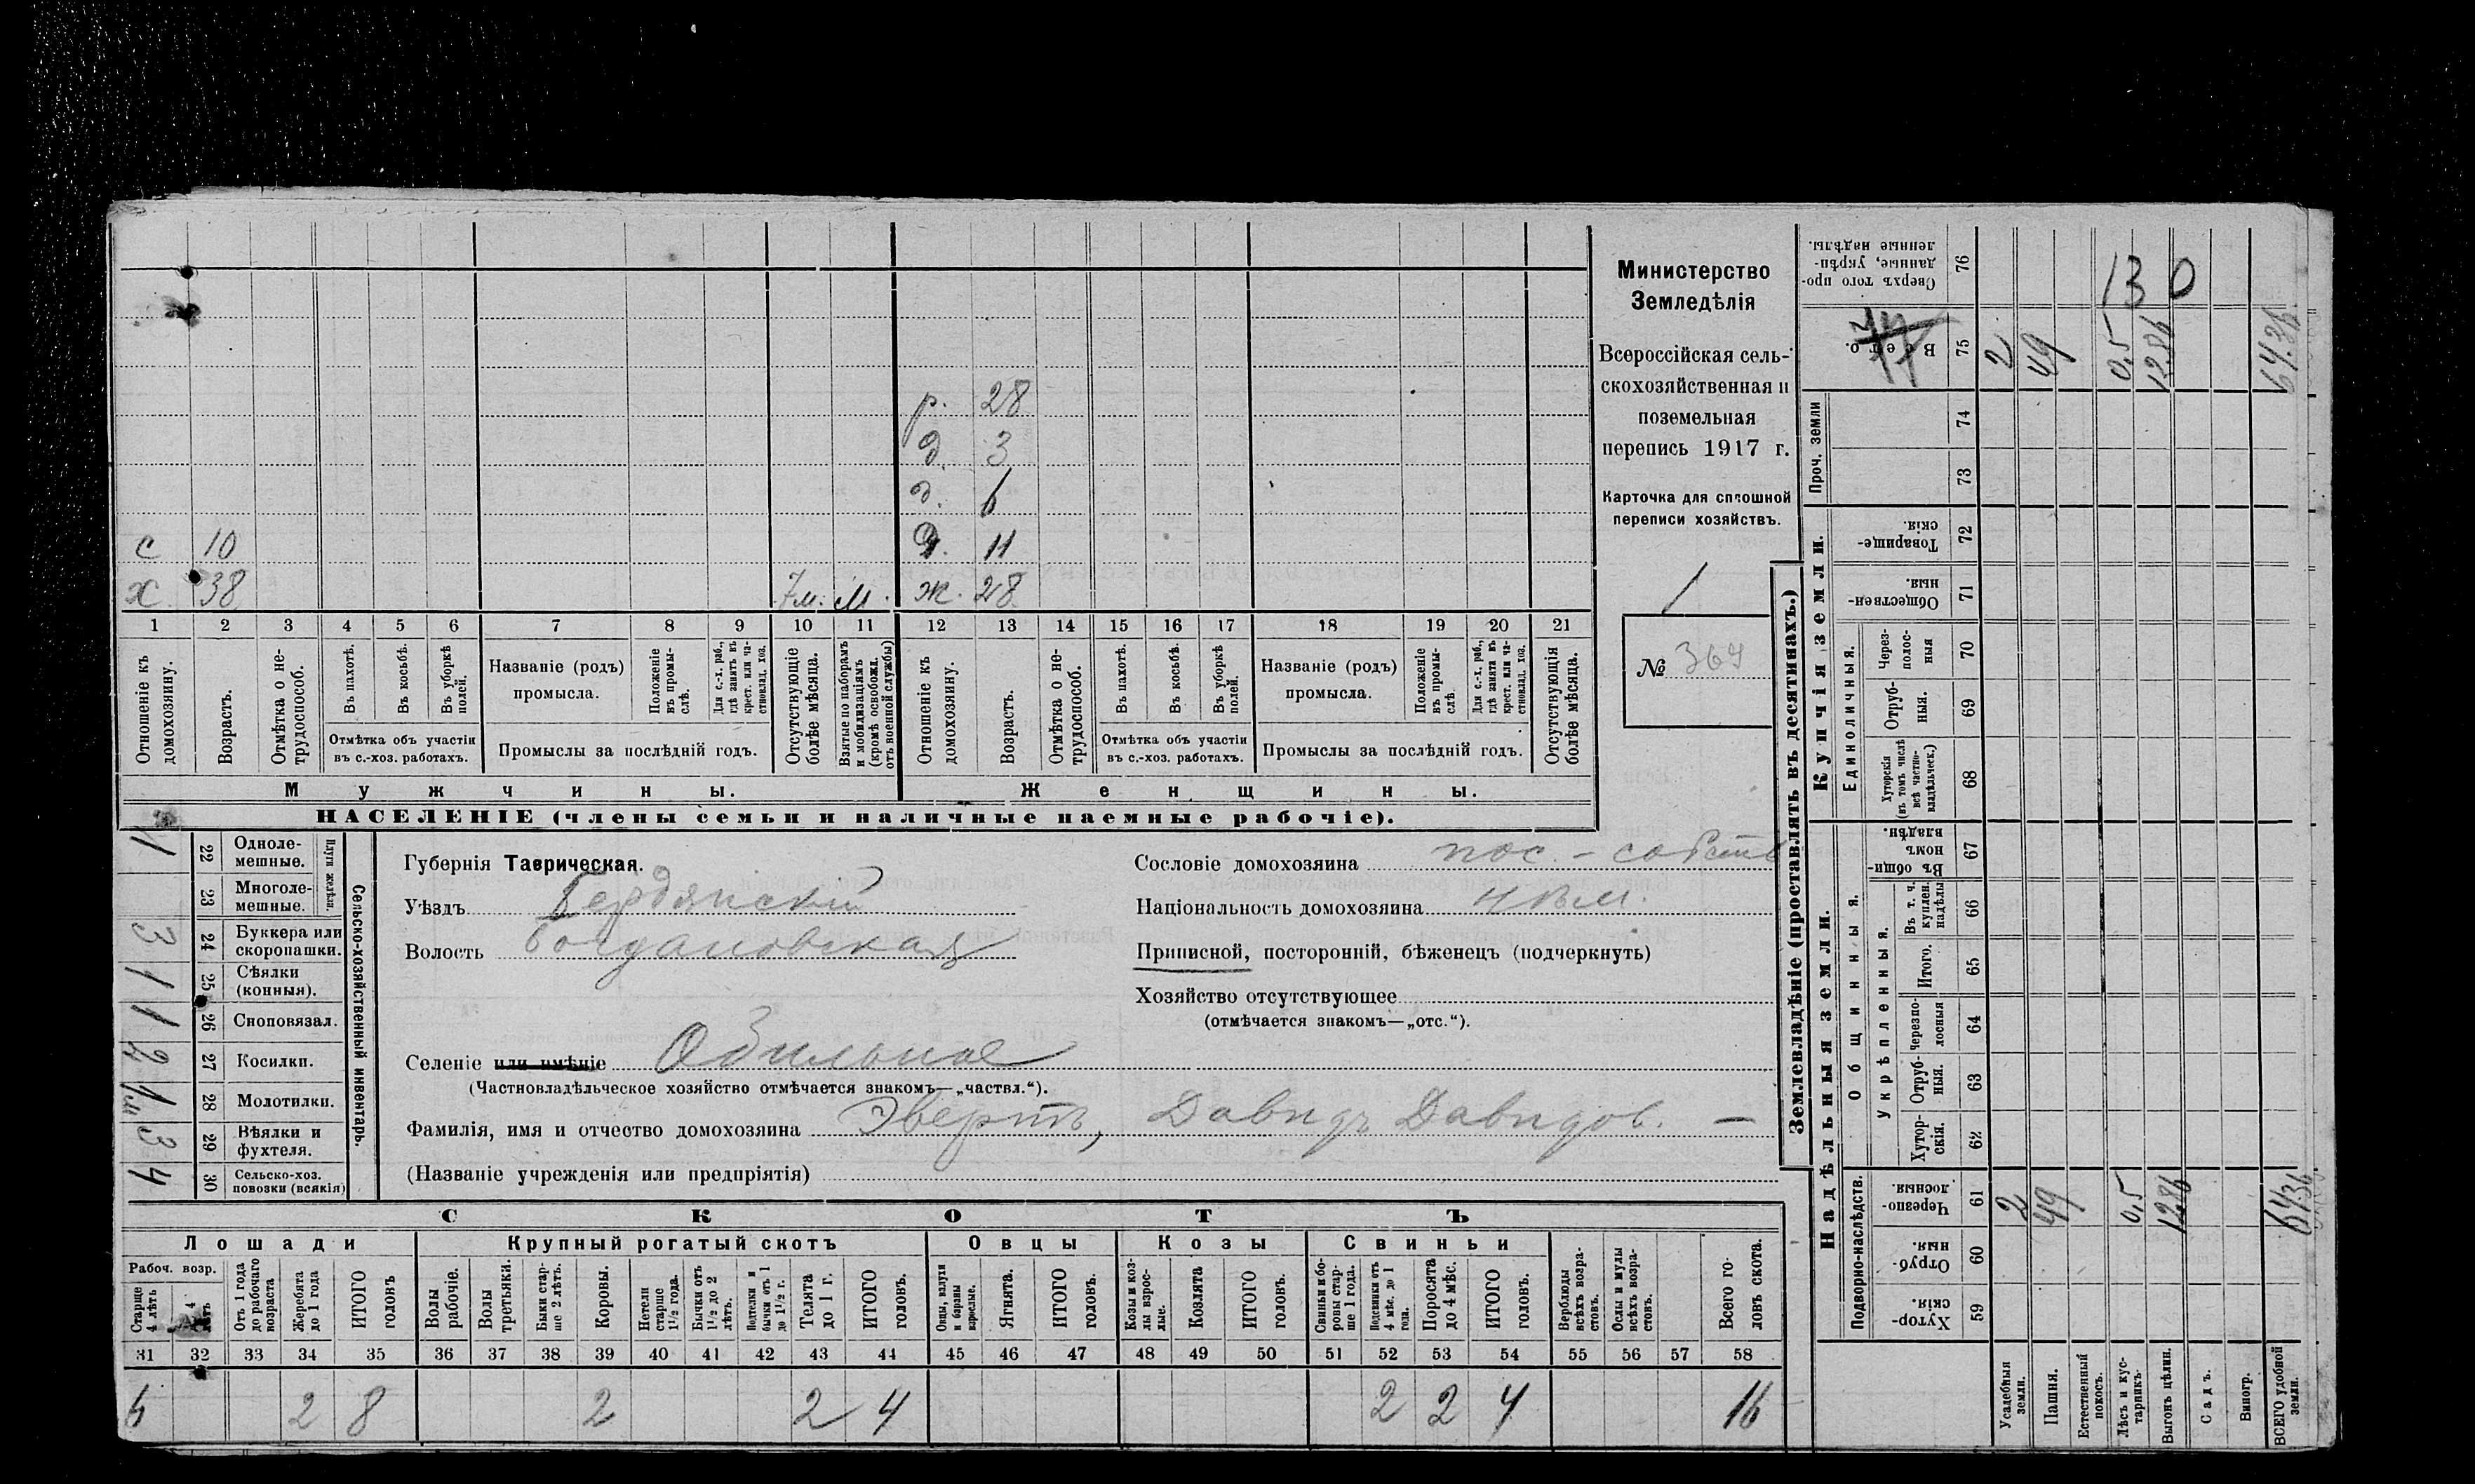 Министерство
Земледѣлія
Всероссійская сель-
скохозяйственная и
поземельная
перепись 1917 г.
Карточка для сплошной
переписи хозяйствъ.
1
№ 369
р. 28
д. 3
д. 6
с 10 д. 11
х. 38 7м. м. ж. 28
1 2 3 4 5 6 7 8 9 10 11 12 13 14 15 16 17 18 19 20 21
Отношеніе къ домохозяину.
Возрастъ.
Отмѣтка о не-трудоспособ.
Въ пахотѣ.
Въ косьбѣ.
Въ уборкѣ полей.
Отмѣтка объ участіи въ с.-хоз. работахъ.
Названіе (родъ) промысла.
Положеніе въ промы-слѣ.
Для с.-х. раб., гдѣ занятъ въ крест. или ча-стновлад. хоз.
Промыслы за послѣдній годъ.
Отсутствующіе болѣе мѣсяца.
Взятые по наборамъ и мобилизаціямъ (кромѣ освобожд. отъ военной службы)
Отношеніе къ домохозяину.
Возрастъ.
Отмѣтка о не-трудоспособ.
Въ пахотѣ.
Въ косьбѣ.
Въ уборкѣ полей.
Отмѣтка объ участіи въ с.-хоз. работахъ.
Названіе (родъ) промысла.
Положеніе въ промы-слѣ.
Для с.-х. раб., гдѣ занята въ крест. или ча-стновлад. хоз.
Промыслы за послѣдній годъ.
Отсутствующія болѣе мѣсяца.
Мужчины. Женщины.
НАСЕЛЕНІЕ (члены семьи и наличные наемные рабочіе).
Сельско-хозяйственный инвентарь.
Плуги желѣзн.
1 22 Одноле-мешные.
23 Многоле-мешные.
3 24 Буккера или скоропашки.
1 25 Сѣялки (конныя).
1 26 Сноповязал.
2 27 Косилки.
28 Молотилки.
3 29 Вѣялки и фухтеля.
4 30 Сельско-хоз. повозки (всякія)
Губернія Таврическая.
Уѣздъ Бердянскій
Волость Богдановская
Селеніе или имѣніе Обильное
(Частновладѣльческое хозяйство отмѣчается знакомъ—„частвл.“).
Фамилія, имя и отчество домохозяина Эвертъ, Давидъ Давидов. —
(Названіе учрежденія или предпріятія)
Сословіе домохозяина пос. - собств
Національность домохозяина нѣм.
Приписной, посторонній, бѣженецъ (подчеркнуть)
Хозяйство отсутствующее
(отмѣчается знакомъ—„отс.“).
СКОТЪ
Лошади Крупный рогатый скотъ Овцы Козы Свиньи
Рабоч. возр.
Старше 4 лѣтъ
4 лѣтъ
Отъ 1 года до рабочаго возраста
Жеребята до 1 года
ИТОГО головъ
Волы рабочіе.
Волы третьяки.
Быки стар-ше 2 лѣтъ.
Коровы.
Нетели старше 1½ года.
Бычки отъ 1½ до 2 лѣтъ.
Подтелки и бычки отъ 1 до 1½ г.
Телята до 1 г.
ИТОГО головъ.
Овцы, валухи и бараны взрослые.
Ягнята.
ИТОГО головъ.
Козы и коз-лы взрос-лые.
Козлята
ИТОГО головъ.
Свиньи и бо-ровы стар-ше 1 года.
Подсвинки отъ 4 мѣс. до 1 года.
Поросята до 4 мѣс.
ИТОГО головъ.
Верблюды всѣхъ возра-стовъ.
Ослы и мулы всѣхъ возра-стовъ.
Всего го-ловъ скота.
31 32 33 34 35 36 37 38 39 40 41 42 43 44 45 46 47 48 49 50 51 52 53 54 55 56 57 58
6 2 8 2 2 4 2 2 4 16
Землевладѣніе (проставлять въ десятинахъ.)
Надѣльныя земли.
Купчія земли.
Проч. земли
Подворно-наслѣдств.
Общинныя.
Укрѣпленныя.
Единоличныя.
Сверхъ того про-данные, укрѣп-ленные надѣлы. 76 130
Всего. 75 2 49 0,5 12.86 64.36
74
73
Товарище-скія. 72
Обществен-ныя. 71
Через-полос-ныя 70
Отруб-ныя. 69
Хуторскія (въ томъ числѣ всѣ частно-владѣльческ.) 68
Въ общин-номъ владѣн. 67
Въ т. ч. куплен. надѣлы 66
Итого. 65
Черезпо-лосныя 64
Отруб-ныя. 63
Хутор-скія. 62
Черезпо-лосныя. 61 2 49 0,5 12.86 64.36
Отруб-ныя. 60
Хутор-скія. 59
Усадебныя земли.
Пашня.
Естественный покосъ.
Лѣсъ и кус-тарникъ.
Выгонъ цѣлин.
Садъ.
Виногр.
ВСЕГО удобной земли.